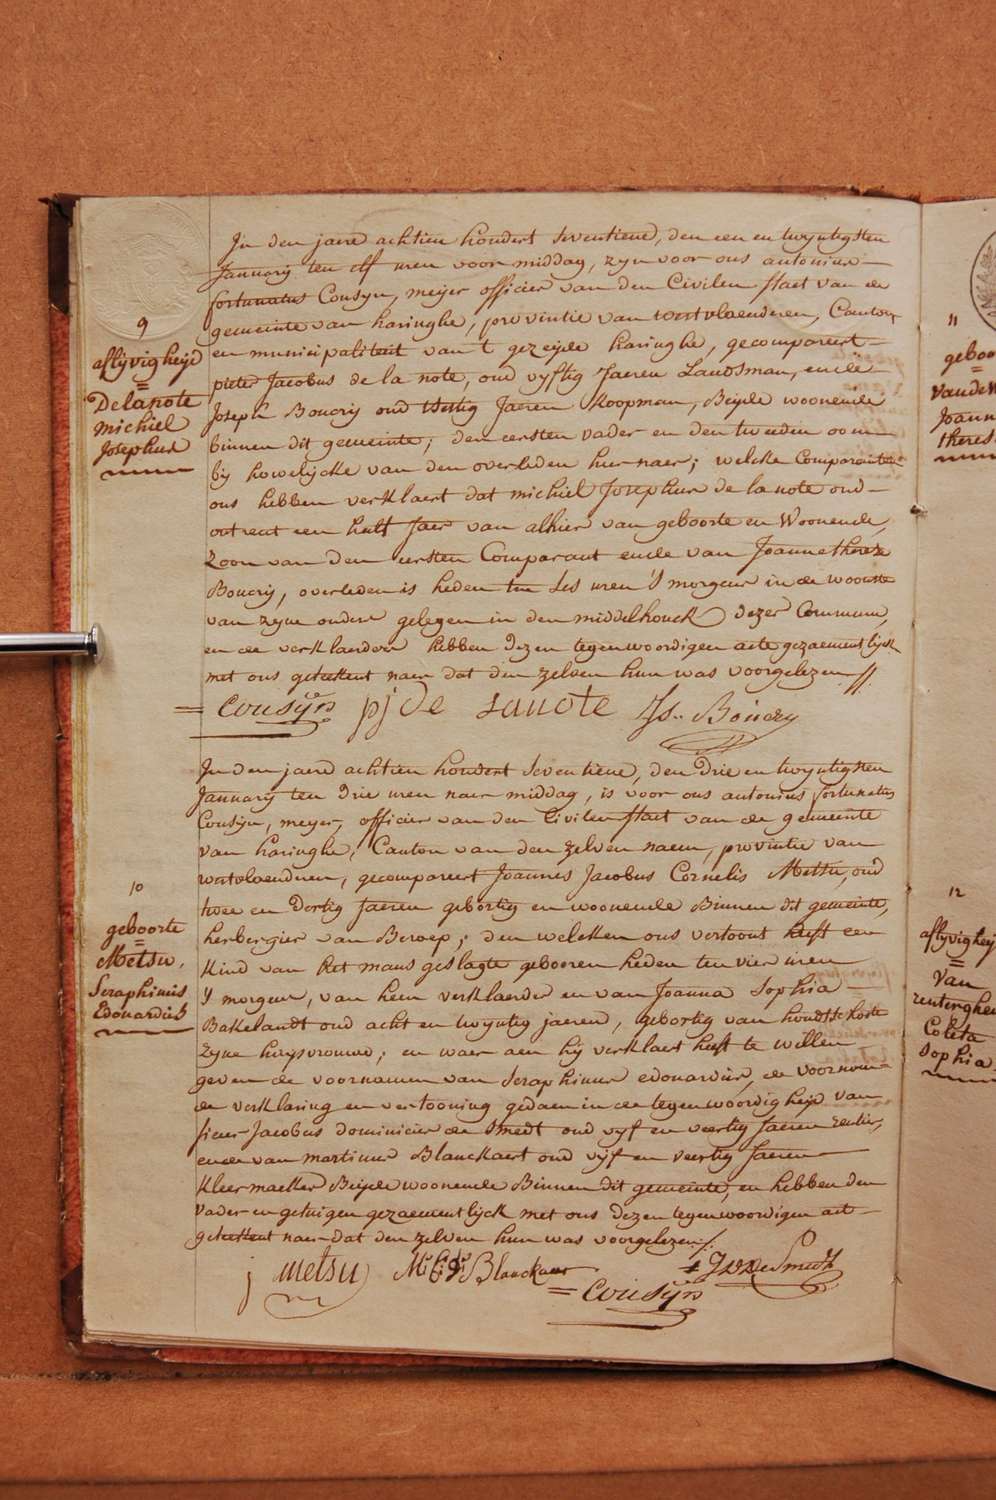 9
aflijvigheijd
=
Delanote
michiel
Josephus
In den jaere achtien hondert seventiene, den een en twyntigsten
January ten elf uren voor middag, zyn voor ons antonius
fortunatus Cousyn, meijer officier van den Civilen staet van de
gemeinte van haringhe, provintie van westvlaenderen, Canton
en municipaliteit van 't gezeijde haringhe, gecompareert
pieter Jacobus de la note, oud vyftig Jaeren Landsman, ende
Joseph Boucry oud Jaeren Koopman, Beijde woonende
binnen dit gemeinte; den eersten vader en den tweeden oom
bij howelijcke van den overleden hier naer; welcke Comparanten
ons hebben verklaert dat michiel Josephus de la note oud
ontrent een half Jaer van alhier van geboorte en Woonende,
Zoon van den eersten Comparant ende van Joanne thereze
Boucry, overleden is heden ten ses uren 's morgens in de wooste
van zyne ouders gelegen in den middelhouck dezer Commune,
en de verklaerders hebben dezen tegenwoordigen acte gezaementlijck
met ons geteekent naer dat den zelven hun was voorgelezen //
= Cousÿn pj de lanote Js.. Boucry
10
geboorte
=
Metsu,
Seraphinus
Edouardus
In den jaere achtien hondert seventiene, den Drie en twyntigsten
January ten drie uren naer middag, is voor ons antonius fortunatus
Cousyn, meyer, officier van den Civilen staet van de gemeinte
van haringhe, Canton van den zelven naem, provintie van
westvlaenderen, gecompareert Joannes Jacobus Cornelis Metsu, oud
twee en Dertig Jaeren gebortig en woonende Binnen dit gemeinte,
herbergier van Beroep; den welcken ons vertoont heeft een
kind van het mans geslagte gebooren heden ten vier uren
's morgens, van hem verklaerder en van Joanna Sophia
Bakelandt oud acht en twyntig jaeren, gebortig van
Zyne huysvrouwe; en waer aen hij verklaert heeft te willen
geven de voornamen van Seraphinus edouardus, de voornom-
de verklaring en vertooning gedaen in de tegenwoordigheijd van
sieur Jacobus dominicus de Smedt oud vyf en veertig Jaeren rentier,
ende van martinus Blanckaert oud vijf en veertig Jaeren
kleermaeker Beijde woonende Binnen dit gemeinte, en hebben den
vader en getuigen gezaementlijck met ons dezen tegenwoordigen act
geteekent naer dat den zelven hun was voorgelezen /.
j metsu Blanckaert De Smedt
= Cousÿn
11
geboo
Vande W
Joann
theres
12
aflyvigheij
=
Van
renterghem
Coleta
Sophia